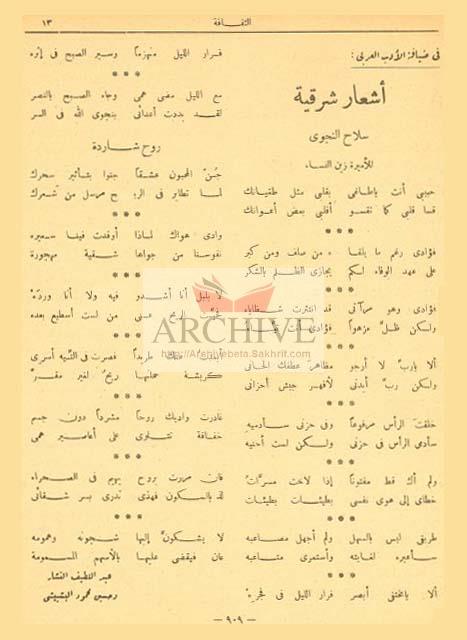 الثقافة
١٣
فى ضيافة الأدب العربى :
أشعار شرقية
سلاح النجوى
للأميرة زين النساء
حبيبى أنت يا طاغى بقلبى مثل طغيانك
قسا قلبى كما تقسو أقلبى بعض أعوانك
* * *
فؤادى رغم ما يلقا ه من صلف ومن كبر
على عهد الوفاء لكم يجازى الظلم بالشكر
* * *
فؤادى وهو مرآتى قد انتثرت شظاياه
ولكن ظل مزهوا فؤادى أنت
* * *
ألا يا رب لا أرجو مظاهر عطفك الحانى
ولكن رب أيدنى لأقهر جيش أحزانى
* * *
خلقت الرأس مرفوعا وفى حزنى سأدميه
سأدمى الرأس فى حزنى ولكن لست أحنيه
* * *
ولم أك قط مفتونا إذا لاحت مسرات
خطاى إلى هوى نفسى بطيئات بطيئات
* * *
طريقى ليس بالسهل ولم أجهل مصاعبه
سأعبره لغايته وأستمرى متاعبه
* * *
ألا يا محنتى أبصر فرار الليل فى فجره
فرار الليل منهزما وسير الصبح فى إثره
* * *
مع الليل مضى همى وجاء الصبح بالنصر
لقد بددت أعدائى بنجوى الله فى السر
روح شاردة
جن المحبون عشقا جنوا بتأثير سحرك
لما تطاير فى الريـ ح مرسل من شعرك
* * *
وادى هواك لماذا أوقدت فينا سعيره
نفوسنا من جواها شقية مهجورة
* * *
لا بلبل أنا أشدو فيه ولا أنا ورده
الريح عنى من لست أسطيع بعده
* * *
طريدا فصرت فى التيه أسرى
كريشة حملتها ريح لغير مقر
* * *
غادرت واديك روحا مشردا دون جسم
خفاقة تتلوى على أعاصير همى
* * *
فإن مررت بروح يهيم فى الصحراء
لذ بالسكون فهذى تدرى بسر شقائى
* * *
لا يشكون إليها شجونه وهمومه
عان فيقضى عليها بالأسهم المسمومة
عبد اللطيف النشار
وحسين محمود البشبيشى
— ٩٠٩ —
ARCHIVE
http://Archivebeta.Sakhrit.com